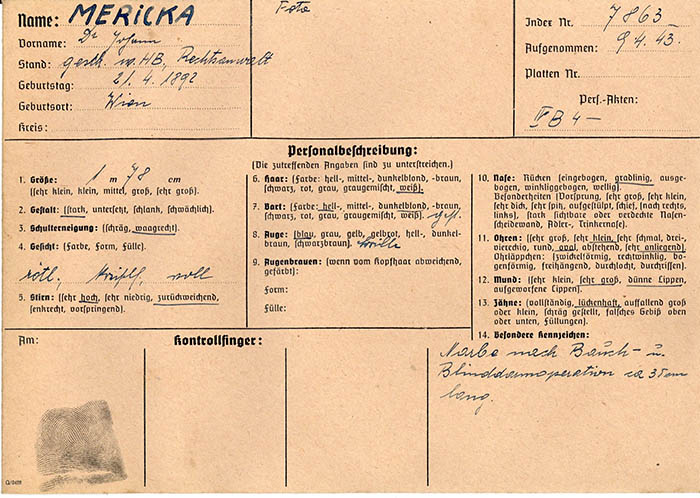 Name: MERICKA
Vorname: Dr Johann
Stand: gesch. m. HB, Rechtsanwalt
Geburtstag: 21. 4. 1892
Geburtsort: Wien
Kreis:
Foto
Index Nr. 7863
Aufgenommen: 9 4. 43.
Platten Nr.
Pers.-Akten:
IV B 4 —
Personalbeschreibung:
(Die zutreffenden Angaben sind zu unterstreichen.)
1. Größe: 1 m 78 cm
(sehr klein, klein, mittel, groß, sehr groß).
2. Gestalt: (stark, untersetzt, schlank, schwächlich).
3. Schulterneigung: (schräg, waagrecht).
4. Gesicht: (Farbe, Form, Fülle).
rötl., voll
5. Stirn: (sehr hoch, sehr niedrig, zurückweichend,
senkrecht, vorspringend).
6. Haar: (Farbe: hell-, mittel-, dunkelblond, -braun,
schwarz, rot, grau, graugemischt, weiß).
7. Bart: (Farbe: hell-, mittel-, dunkelblond, -braun,
schwarz, rot, grau, graugemischt, weiß).
8. Auge: (blau, grau, gelb, gelbrot, hell-, dunkel-
braun, schwarzbraun). Brille
9. Augenbrauen: (wenn vom Kopfhaar abweichend,
gefärbt):
Form:
Fülle:
10. Nase: Rücken (eingebogen, gradlinig, ausge-
bogen, winkliggebogen, wellig).
Besonderheiten (Vorsprung, sehr groß, sehr klein,
sehr dick, sehr spitz, aufgestülpt, schief, [nach rechts,
links], stark sichtbare oder verdeckte Nasen-
scheidewand, Adler-, Trinkernase).
11. Ohren: (sehr groß, sehr klein, sehr schmal, drei-,
viereckig, rund, oval, abstehend, sehr anliegend)
Ohrläppchen: (zwickelförmig, rechtwinklig, bo-
genförmig, freihängend, durchlocht, durchrissen).
12. Mund: (sehr klein, sehr groß, dünne Lippen,
aufgeworfene Lippen).
13. Zähne: (vollständig, lückenhaft, auffallend groß
oder klein, schräg gestellt, falsches Gebiß oben
oder unten, Füllungen).
14. Besondere Kennzeichen:
Narbe nach Bauch- u.
Blinddarmoperation ca 35 cm
lang.
Am:
Kontrollfinger: